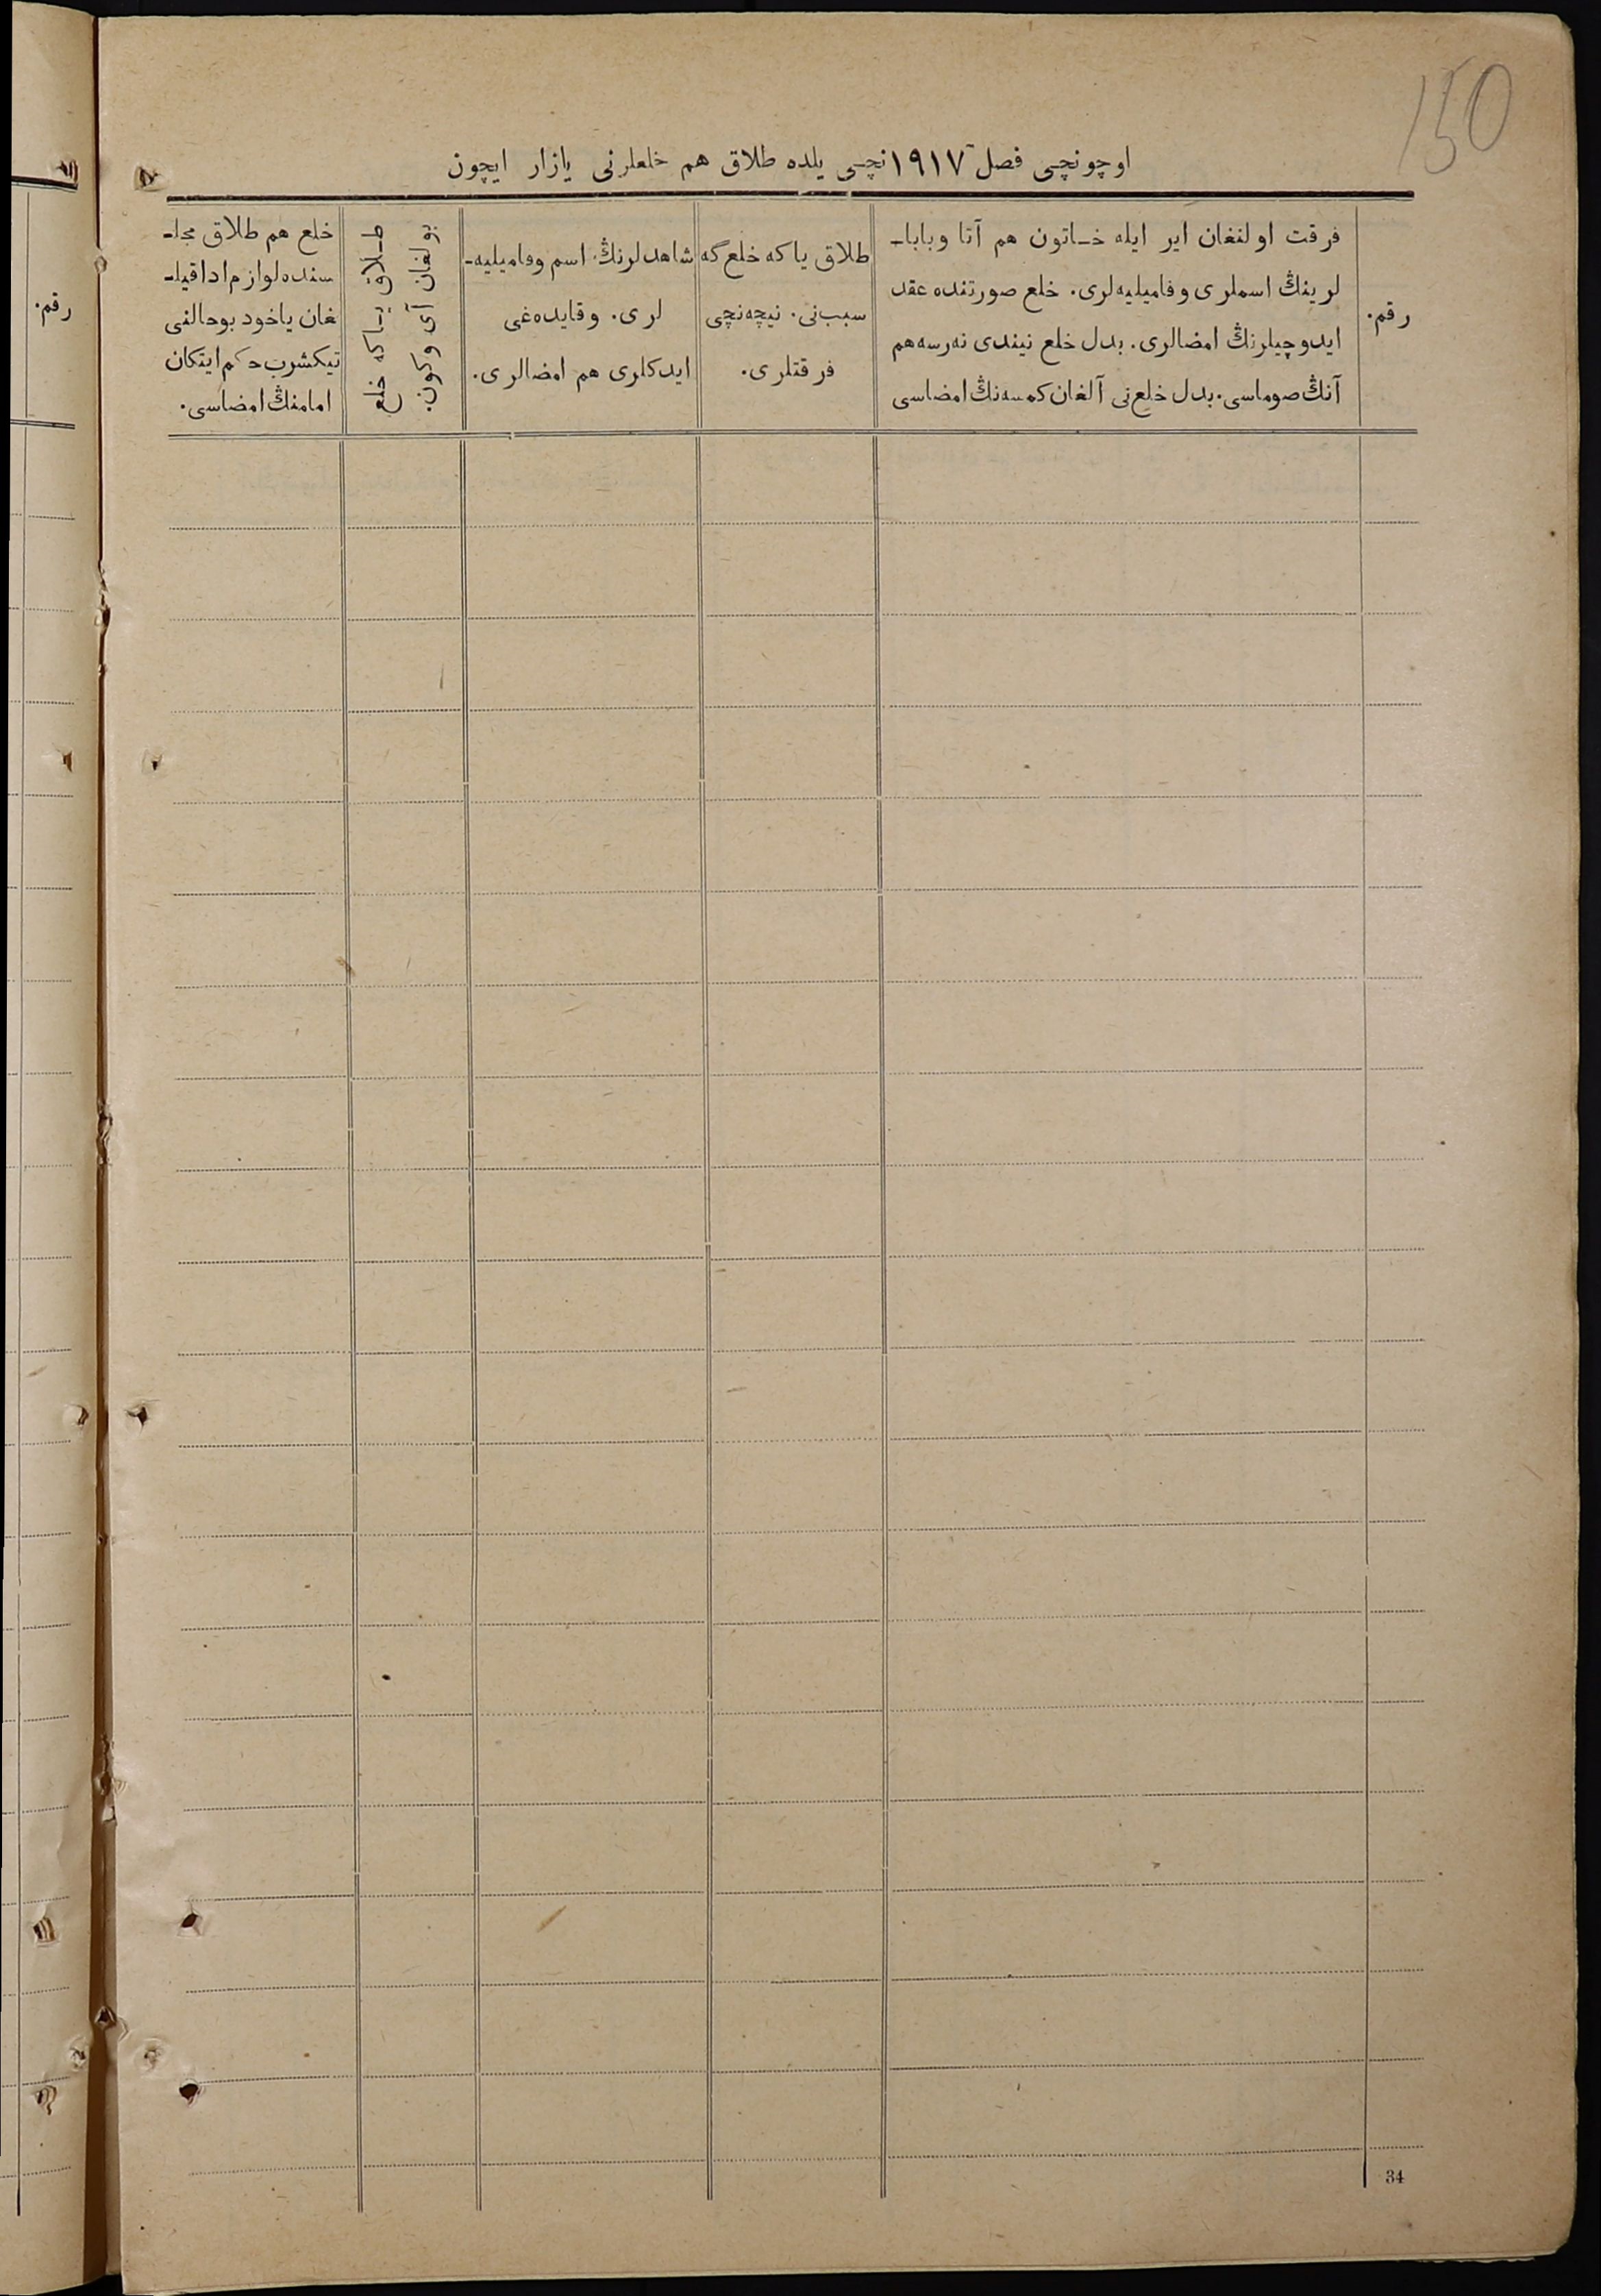 150
اوچونچی فصل ١٩١٧نچی یلده طلاق هم خلعلرنی یازار ایچون
رقم.
فرقت اولنغان ایر ایله خاتون هم آتا وبابا-
لرینڭ اسملری وفامیلیه‌لری. خلع صورتنده عقد
ایدوچیلرنڭ امضالری. بدل خلع نیندی نه‌رسه هم
آنڭ صوماسی. بدل خلع‌نی آلغان کمسه‌نڭ امضاسی
طلاق یا که خلع گه
سبب‌نی. نیچه‌نچی
فرقتلری.
شاهدلرنڭ اسم وفامیلیه-
لری. وقایده‌غی
ایدکلری هم امضالری.
طلاق یا که خلع
بولغان آی وکون.
خلع هم طلاق مجل-
سنده لوازم ادا قیل-
غان یاخود بوحالنی
تیکشرب حکم ایتکان
امامنڭ امضاسی.
رقم.
34